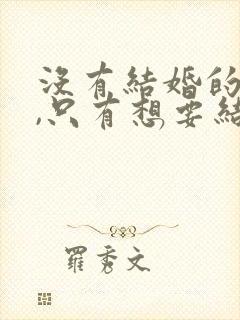 沒有結婚的
,只有想要結
羅秀文